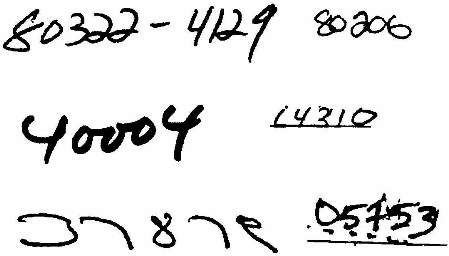 80322-4129 80206
40004 14310
37878 05753